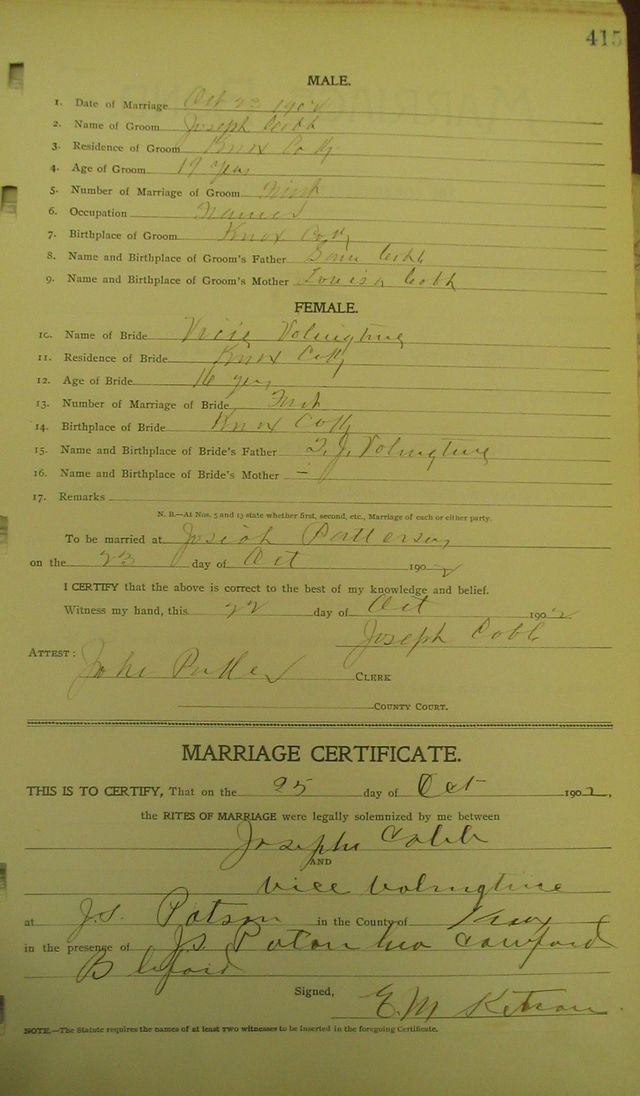 415
MALE.
1. Date of Marriage Oct 23 1902
2. Name of Groom Joseph Cobb
3. Residence of Groom Knox Co Ky
4. Age of Groom 19 years
5. Number of Marriage of Groom First
6. Occupation Farmer
7. Birthplace of Groom Knox Co Ky
8. Name and Birthplace of Groom's Father Cobb
9. Name and Birthplace of Groom's Mother Louisa Cobb
FEMALE.
10. Name of Bride
11. Residence of Bride Knox Co Ky
12. Age of Bride 16 years
13. Number of Marriage of Bride First
14. Birthplace of Bride Knox Co Ky
15. Name and Birthplace of Bride's Father
16. Name and Birthplace of Bride's Mother –
17. Remarks
N. B.—At Nos. 5 and 13 state whether first, second, etc., Marriage of each or either party.
To be married at Josiah Patterson
on the 23 day of Oct 1902
I CERTIFY that the above is correct to the best of my knowledge and belief.
Witness my hand, this 22 day of Oct 1902
Joseph Cobb
ATTEST: CLERK
COUNTY COURT.
MARRIAGE CERTIFICATE.
THIS IS TO CERTIFY, That on the 25 day of Oct 1902,
the RITES OF MARRIAGE were legally solemnized by me between
AND
Vice
at J.S. in the County of Knox
in the presence of J.S.
B
Signed, E. M.
NOTE.—The Statute requires the names of at least two witnesses to be inserted in the foregoing Certificate.